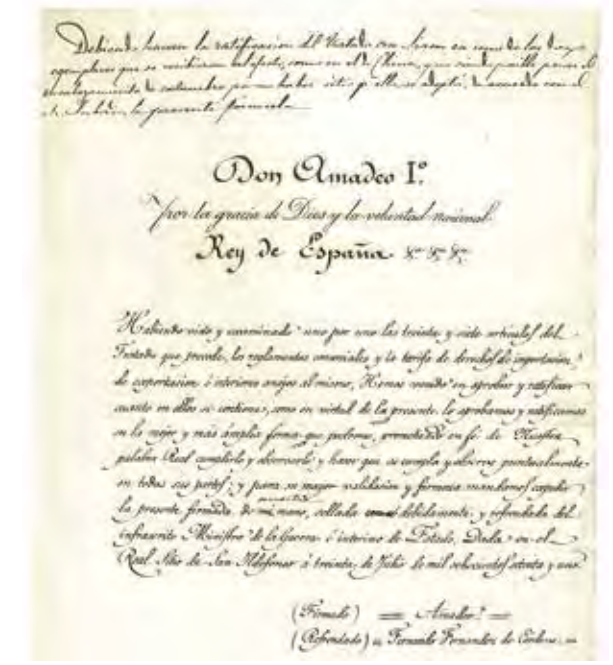 Debiendo hacerse la ratificacion del Tratado con Siam en uno de los dos
ejemplares que se recibieron al efecto, como en el de China, y no siendo posible poner el
encabezamiento de costumbre por no haber sitio p.ª ello se adoptó, de acuerdo con el
la presente fórmula
Don Amadeo I.º
por la gracia de Dios y la voluntad nacional
Rey de España &.ª &.ª &.ª
Habiendo visto y examinado uno por uno los treinta y siete articulos del
Tratado que precede, los reglamentos comerciales y la tarifa de derechos de importacion,
de exportacion é interiores anejos al mismo, Hemos venido en aprobar y ratificar
cuanto en ellos se contiene, como en virtud de la presente lo aprobamos y ratificamos
en la mejor y mas ámplia forma que podemos, prometiendo en fé de Nuestra
palabra Real cumplirlo y observarlo y hacer que se cumpla y observe puntualmente
en todas sus partes; y para su mayor validacion y firmeza mandamos expedir
la presente firmada de nuestra mano, sellada debidamente y refrendada del
infrascrito Ministro de la Guerra é interino de Estado. Dada en el
Real Sitio de San Ildefonso á treinta de Julio de mil ochocientos setenta y uno
(Firmado) = Amadeo =
(Refrendado) = Fernando Fernandez de Córdova =